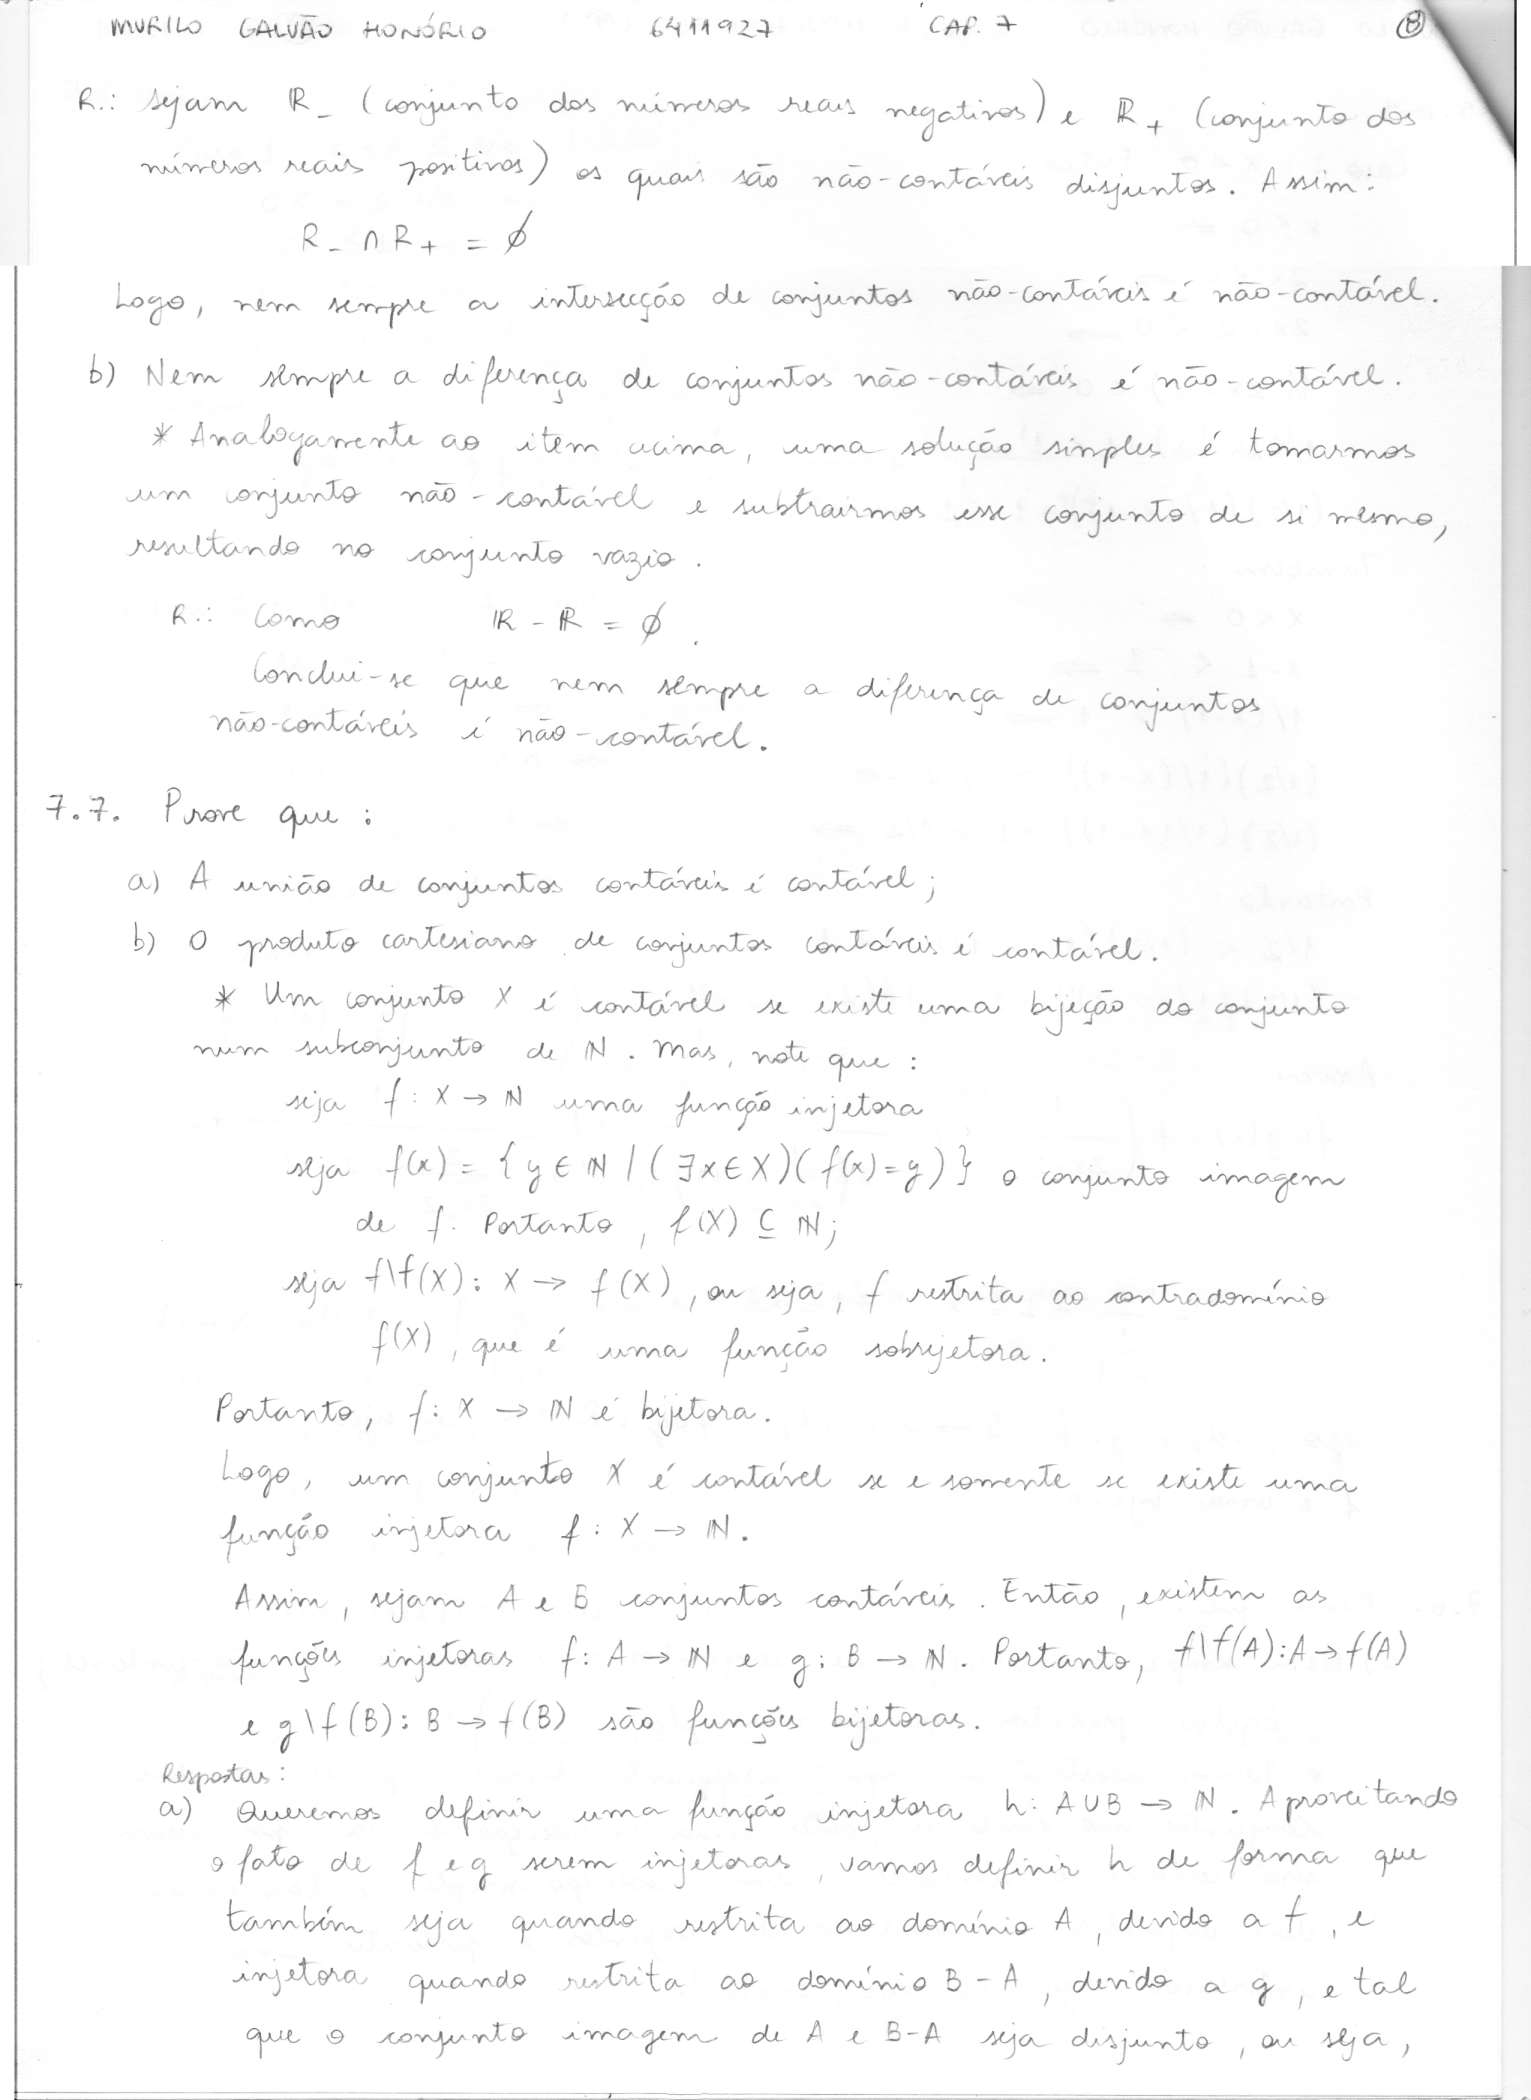 MURILO GALVÃO HONÓRIO 6411927 CAP. 7 8
R.: sejam ℝ_ (conjunto dos números reais negativos) e ℝ+ (conjunto dos
números reais positivos) os quais são não-contáveis disjuntos. Assim:
R_ ∩ R+ = ∅
Logo, nem sempre a intersecção de conjuntos não-contáveis é não-contável.
b) Nem sempre a diferença de conjuntos não-contáveis é não-contável.
* Analogamente ao item acima, uma solução simples é tomarmos
um conjunto não-contável e subtrairmos esse conjunto de si mesmo,
resultando no conjunto vazio.
R.: Como ℝ - ℝ = ∅.
Conclui-se que nem sempre a diferença de conjuntos
não-contáveis é não-contável.
7.7. Prove que:
a) A união de conjuntos contáveis é contável;
b) O produto cartesiano de conjuntos contáveis é contável.
* Um conjunto X é contável se existe uma bijeção do conjunto
num subconjunto de ℕ. Mas, note que:
seja f: X → ℕ uma função injetora
seja f(x) = {y ∈ ℕ | (∃x ∈ X)(f(x) = y)} o conjunto imagem
de f. Portanto, f(X) ⊆ ℕ;
seja f\f(X): X → f(X), ou seja, f restrita ao contradomínio
f(X), que é uma função sobrejetora.
Portanto, f: X → ℕ é bijetora.
Logo, um conjunto X é contável se e somente se existe uma
função injetora f: X → ℕ.
Assim, sejam A e B conjuntos contáveis. Então, existem as
funções injetoras f: A → ℕ e g: B → ℕ. Portanto, f\f(A): A → f(A)
e g\f(B): B → f(B) são funções bijetoras.
Respostas:
a) Queremos definir uma função injetora h: A∪B → ℕ. Aproveitando
o fato de f e g serem injetoras, vamos definir h de forma que
também seja quando restrita ao domínio A, devido a f, e
injetora quando restrita ao domínio B-A, devido a g, e tal
que o conjunto imagem de A e B-A seja disjunto, ou seja,